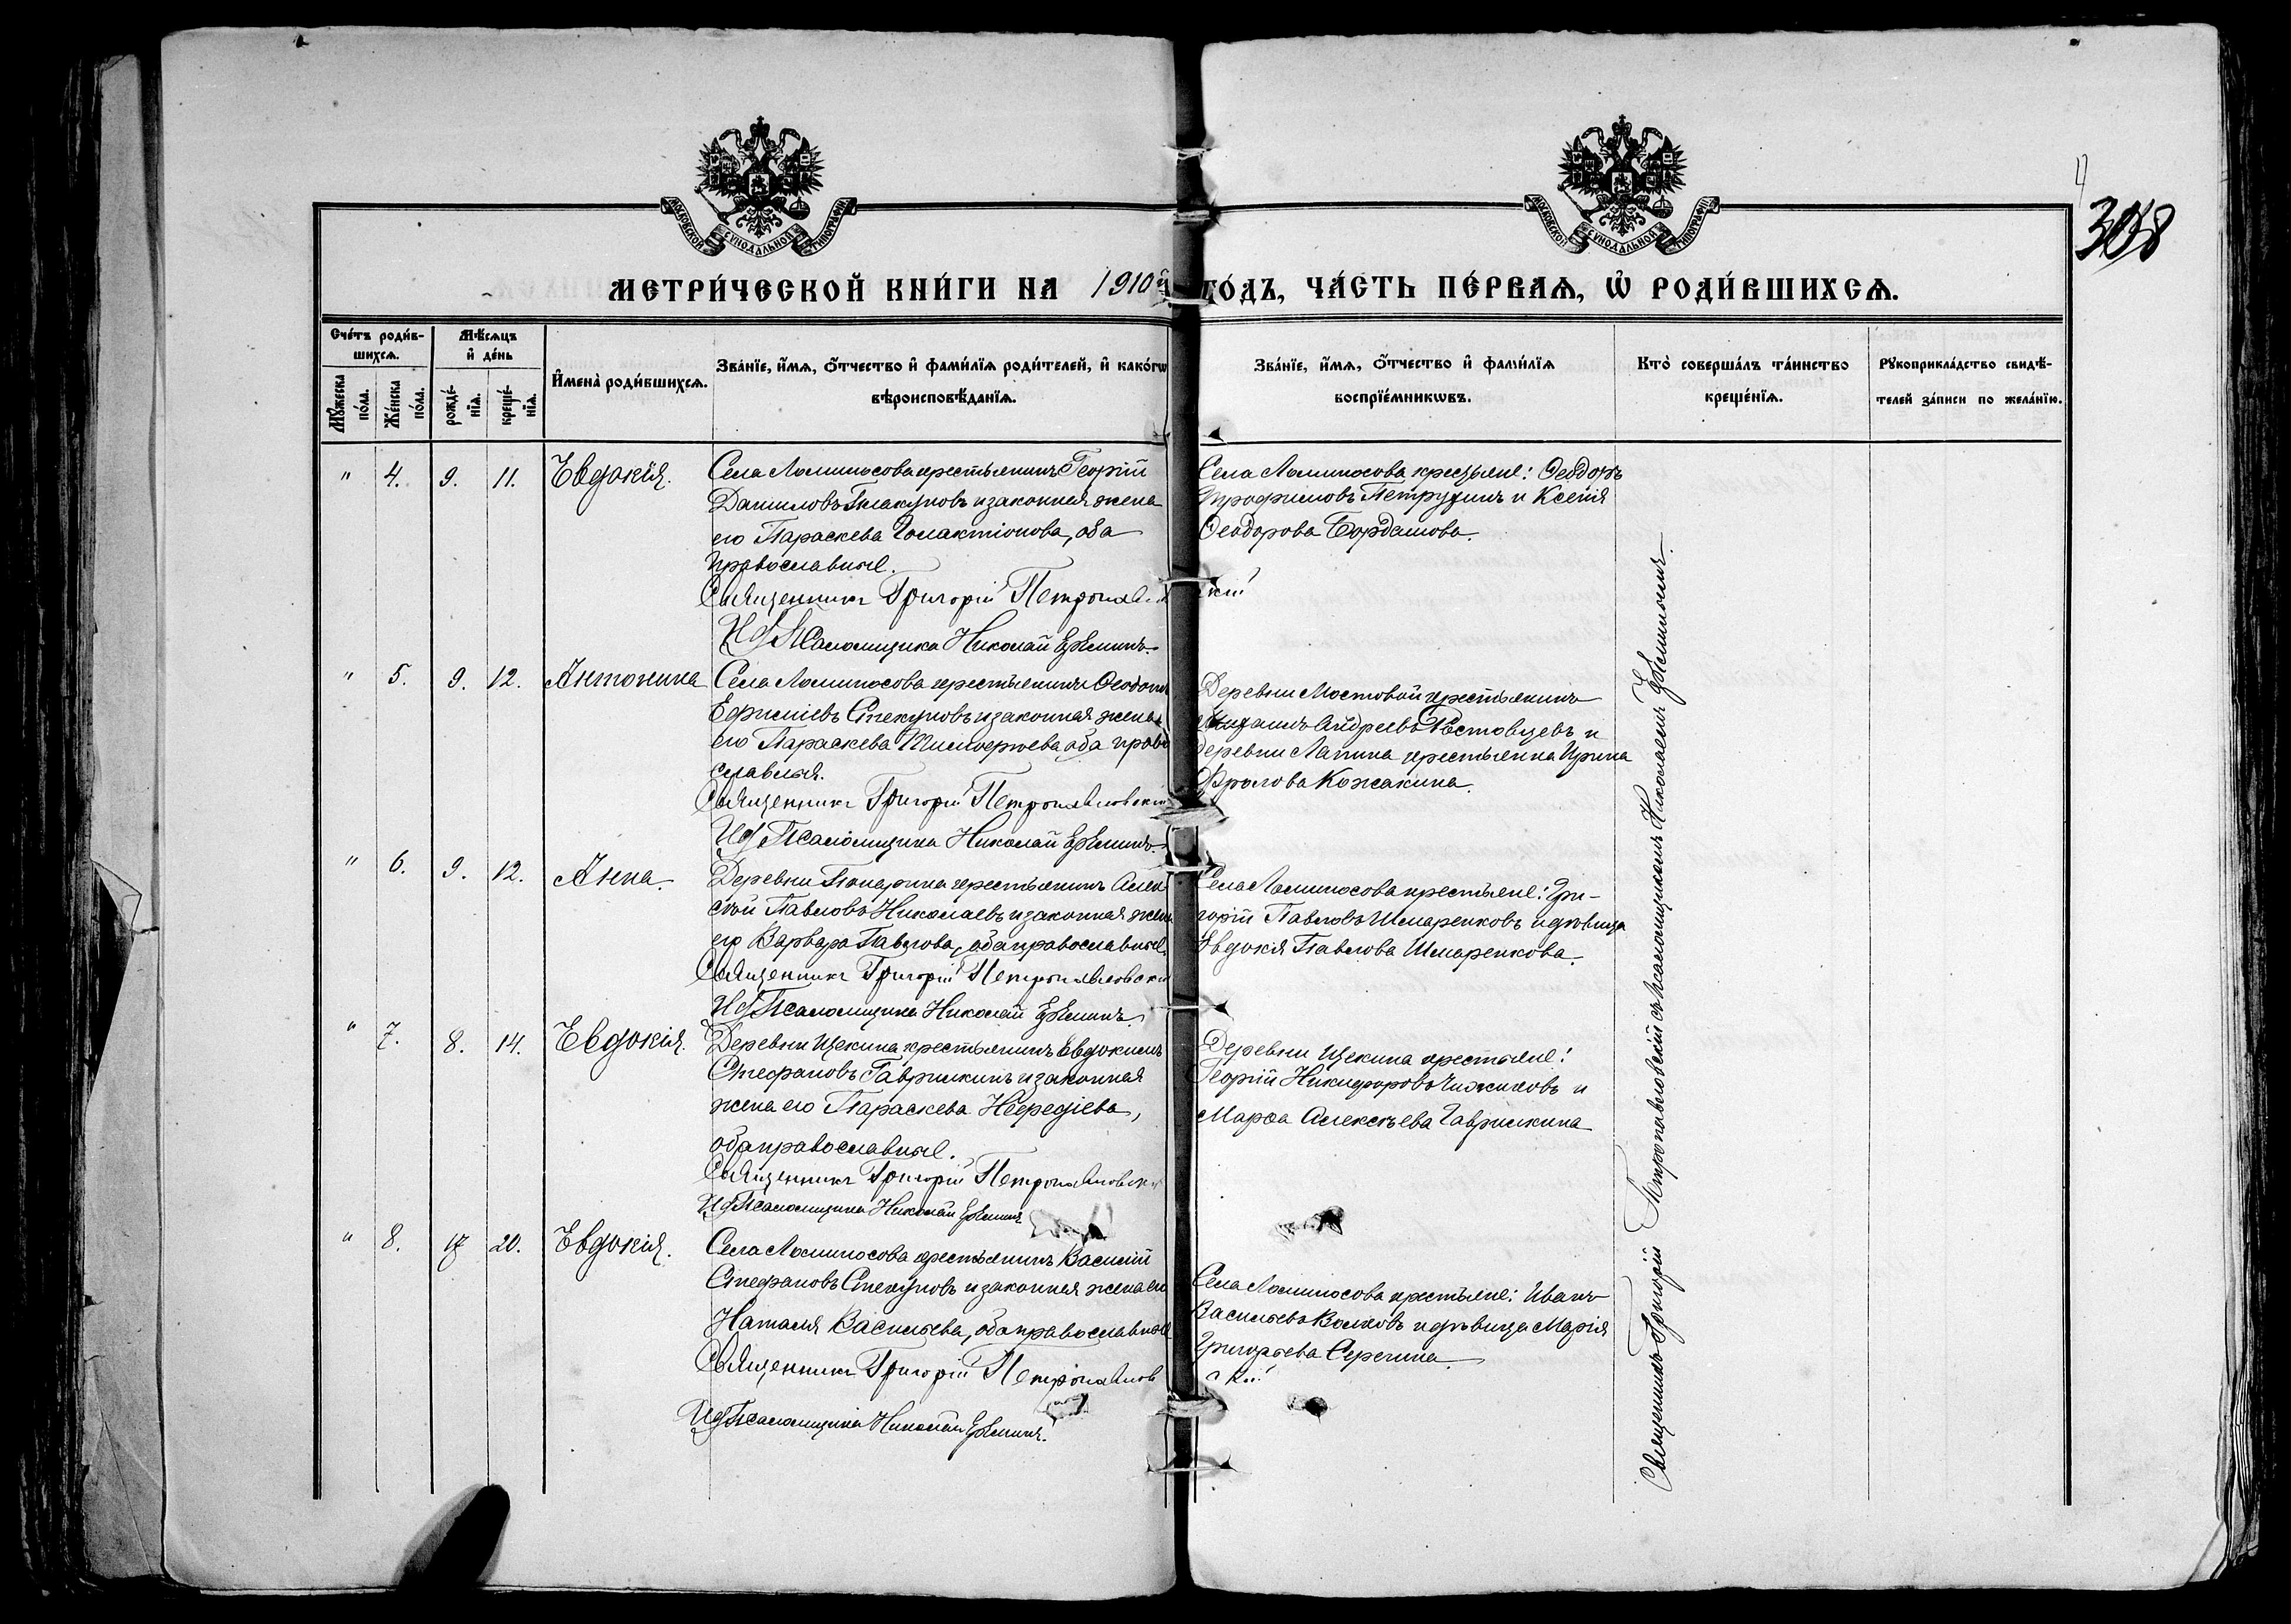 МОСКОВСКОЙ СѴНОДАЛЬНОЙ ТИПОГРАФІИ
МОСКОВСКОЙ СѴНОДАЛЬНОЙ ТИПОГРАФІИ
4
308
МЕТРИ́ЧЕСКОЙ КНИ́ГИ НА 1910й ГО́ДЪ, ЧА́СТЬ ПЕ́РВАѦ, Ѡ҆ РОДИ́ВШИХСѦ.
Сче́тъ роди́в-
шихсѧ.
Мꙋ́жеска по́ла.
Же́нска по́ла.
Мѣ́сѧцъ
и҆ де́нь
рожде́-
нїѧ.
креще́-
нїѧ.
И҆мена̀ роди́вшихсѧ.
Зва́нїе, и҆́мѧ, ѻ҆́тчество и҆ фами́лїѧ роди́телей, и҆ како́гѡ
вѣроисповѣ́данїѧ.
Зва́нїе, и҆́мѧ, ѻ҆́тчество и҆ фами́лїѧ
воспрїе́мникѡвъ.
Кто̀ соверша́лъ та́инство
креще́нїѧ.
Рꙋкоприкла́дство свидѣ́-
телей за́писи по жела́нїю.
" 4. 9. 11. Евдокія.
Села Ломипосова крестьянинъ Георгій
Даниловъ Плакуновъ и законная жена
его Параскева Голактіонова, оба
православные.
Священникъ Григорій Петропавловскій
И д Псаломщика Николай Ерѣминъ.
Села Ломипосова крестьяне: Ѳеодоръ
Трофимовъ Петрухинъ и Ксенія
Ѳеодорова Бордашова.
" 5. 9. 12. Антонина
Села Ломипосова крестьянинъ
Ефиміевъ Стекуновъ и законная жена
его Параскева Тимоѳеева оба право
славныя.
Священникъ Григорій Петропавловскій
И д Псаломщика Николай Ерѣминъ.
Деревни Мостовой крестьянинъ
Михаилъ Андреевъ Ростовцевъ и
деревни Лапина крестьянка Ирина
Фролова Кожакина.
" 6. 9. 12. Анна.
Деревни крестьянинъ Алек
сѣй Павловъ Николаевъ и законная жена
его Варвара Павлова, оба православные.
Священникъ Григорій Петропавловскій
И д Псаломщика Николай Ерѣминъ.
Села Ломипосова крестьяне: Гри-
горій Павловъ Шмаренковъ и дѣвица
Евдокія Павлова Шмаренкова.
" 7. 8. 14. Евдокія.
Деревни Щекина крестьянинъ Евдокимъ
Стефановъ Гаврилкинъ и законная
жена его Параскева
оба православные.
Священникъ Григорій Петропавловскій
И д Псаломщика Николай Ерѣминъ
Деревни Щекина крестьяне:
Георгій Никифоровъ Чижиковъ и
Марѳа Алексѣева Гаврилкина
" 8. 17 20. Евдокія.
Села Ломипосова крестьянинъ Василій
Стефановъ Стекуновъ и законная жена его
Наталія Васильева, оба православные
Священникъ Григорій Петропавловскій
И д Псаломщика Николай Ерѣминъ.
Села Ломипосова крестьяне: Иванъ
Васильевъ Волковъ и дѣвица Марія
Григорьева Серегина.
Священникъ Григорій Петропавловскій съ псаломщикомъ Николаемъ Ерѣминымъ.